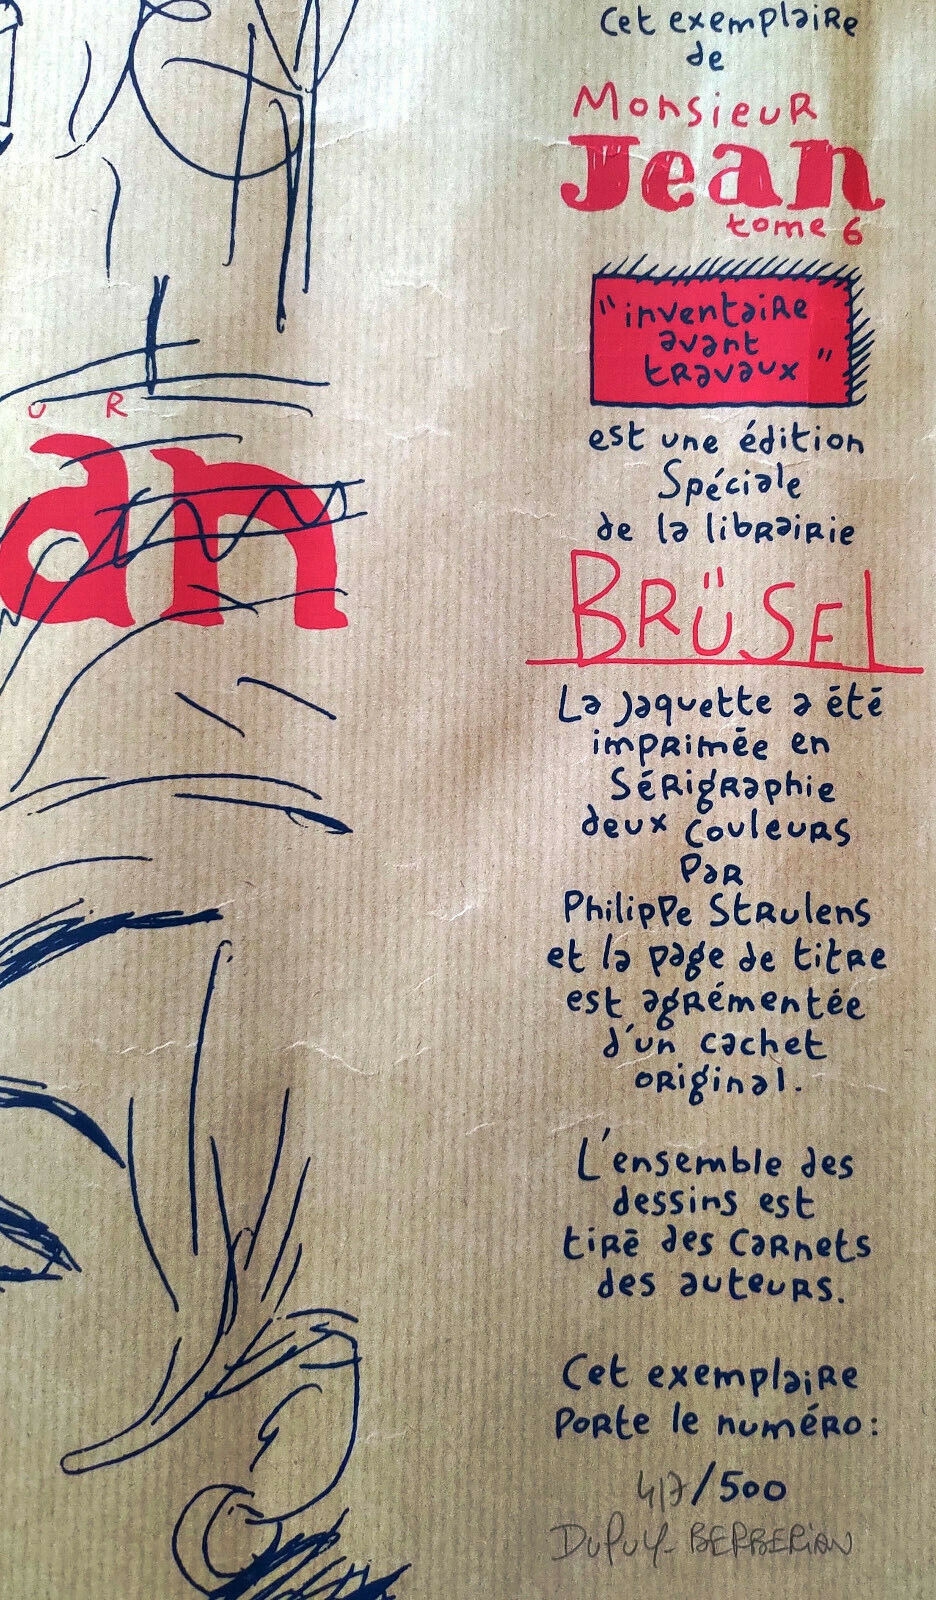 Cet exemplaire
de
Monsieur
Jean
tome 6
"inventaire
avant
travaux"
est une édition
Spéciale
de la librairie
BRÜSEL
La jaquette a été
imprimée en
Sérigraphie
deux couleurs
Par
Philippe Strulens
et la page de titre
est agrémentée
d'un cachet
original.
L'ensemble des
dessins est
tiré des carnets
des auteurs.
Cet exemplaire
Porte le numéro:
417/500
DUPUY-BERBERIAN
U R
an